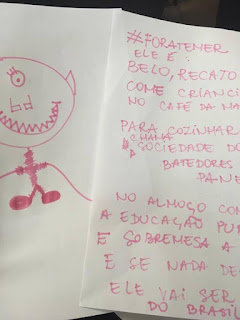 #FORATEMER
ELE É:
BELO, RECATO
COME CRIANCI
NO CAFÉ DA MA
PARA COZINHAR
CHAMA
A SOCIEDADE DO
BATEDORES
PANE
NO ALMOÇO COM
A EDUCAÇÃO PÚB
E SOBREMESA A
E SE NADA DE
ELE VAI SER
DO BRASIL